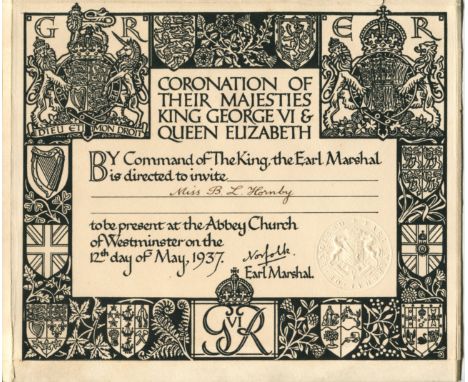 G R
E R
DIEU ET MON DROIT
CORONATION OF
THEIR MAJESTIES
KING GEORGE VI &
QUEEN ELIZABETH
BY Command of The King, the Earl Marshal
is directed to invite
Miss B. L. Hornby
to be present at the Abbey Church
of Westminster on the
12th day of May, 1937.
Norfolk.
Earl Marshal.
G VI R